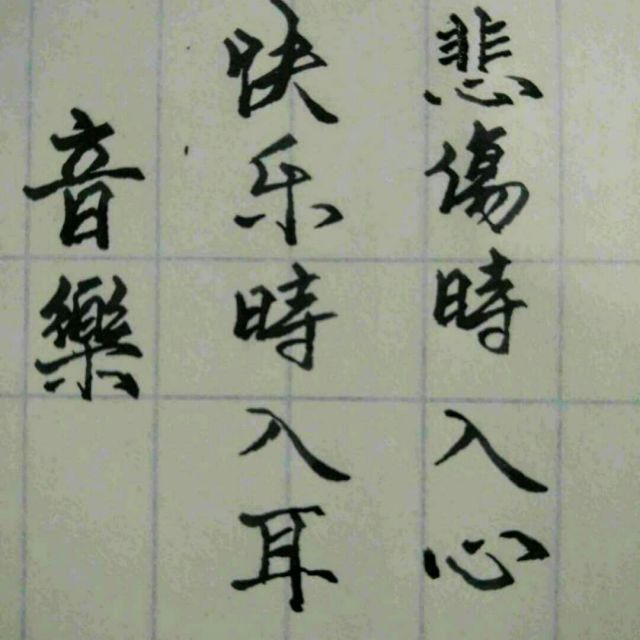 悲傷時入心
快乐時入耳
音樂